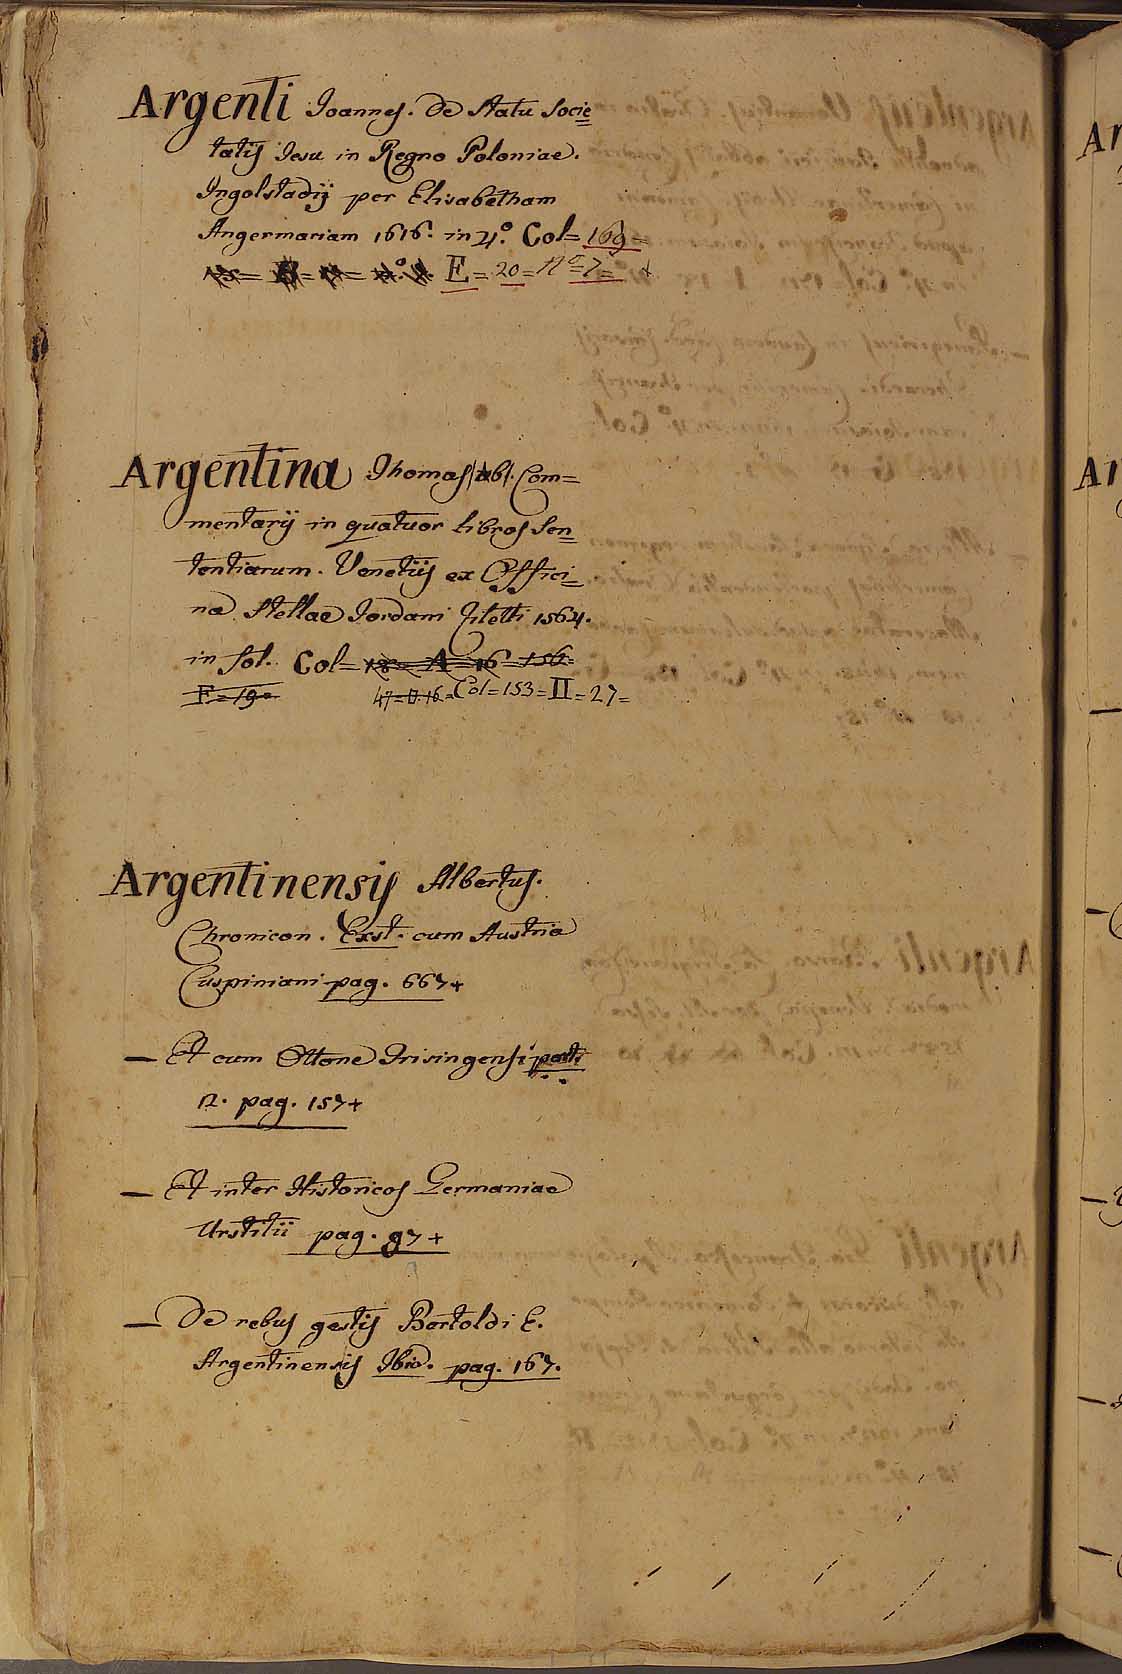 Argenti Joannes. De Statu Socie=
tatis Jesu in Regno Poloniae.
Ingolstadij per Elisabetham
Angermariam 1616. in 4.º Col= 169=
E=20=Nº=7=
Argentina Thomas ab. Com=
mentarij in quatuor libros Sen=
tentiarum. Venetijs ex Offici=
na Stellae Jordani Ziletti 1564.
in fol. Col= 18= A=16=156=
F=19= 47=D.16.=Col=153=II=27=
Argentinensis Albertus.
Chronicon. Exst. cum Austria
Cuspiniani pag. 667+
— Et cum Ottone Frisingensi part.
n. pag. 157+
— Et inter Historicos Germaniae
Urstitii pag. 97+
— De rebus gestis Bertoldi E.
Argentinensis Ibid. pag. 167.
Ar
Ar